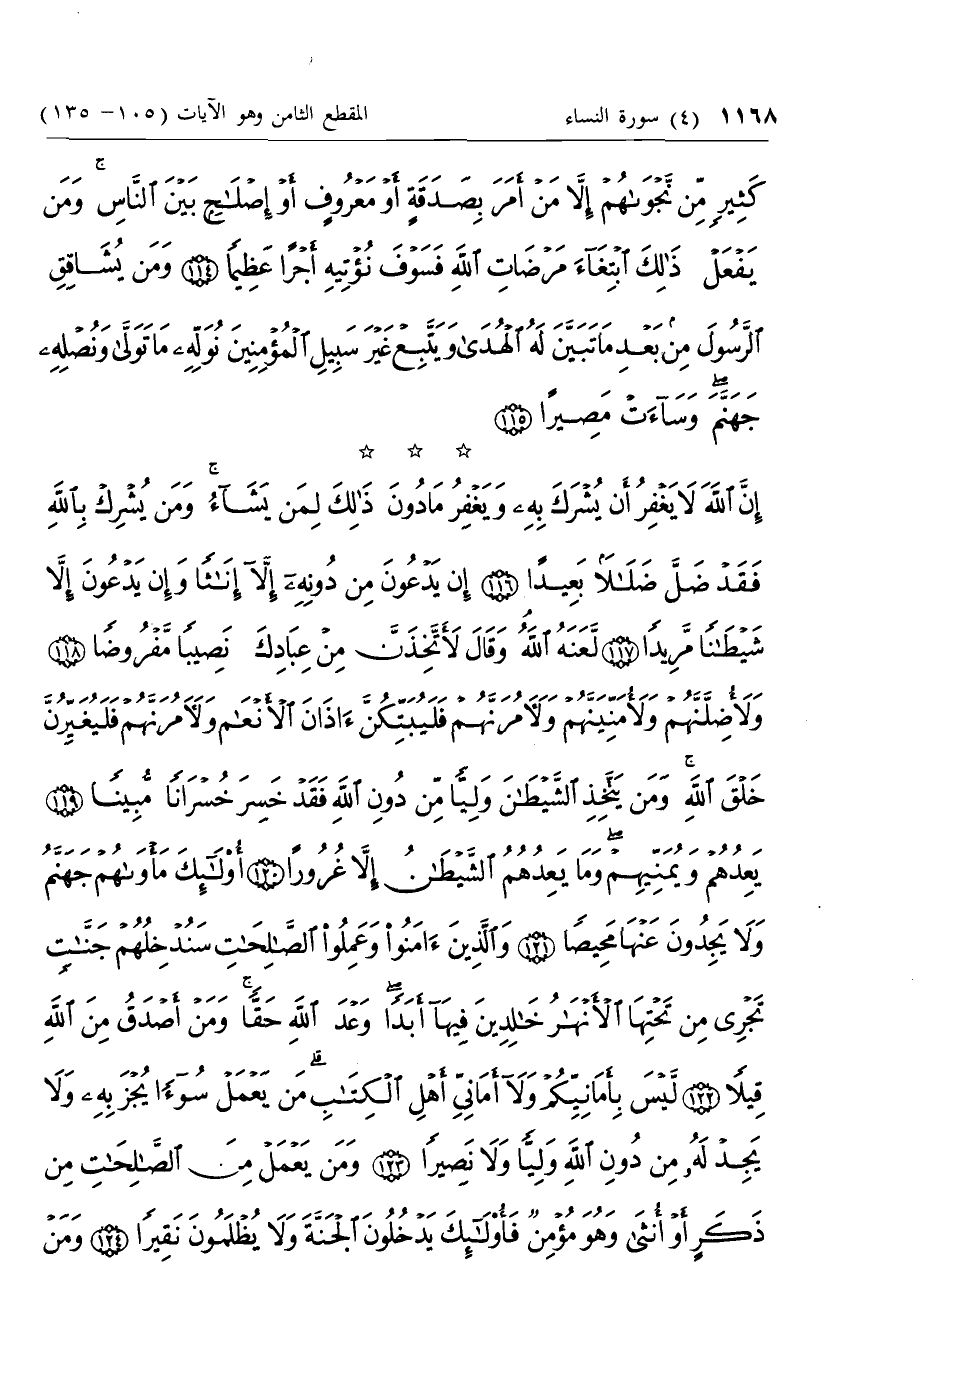 ١١٦٨ (٤) سورة النساء المقطع الثامن وهو الآيات (١٠٥ – ١٣٥)
كَثِيرٍ مِّن نَّجْوَىٰهُمْ إِلَّا مَنْ أَمَرَ بِصَدَقَةٍ أَوْ مَعْرُوفٍ أَوْ إِصْلَٰحٍۭ بَيْنَ ٱلنَّاسِ ۚ وَمَن
يَفْعَلْ ذَٰلِكَ ٱبْتِغَآءَ مَرْضَاتِ ٱللَّهِ فَسَوْفَ نُؤْتِيهِ أَجْرًا عَظِيمًا ﴿١١٤﴾ وَمَن يُشَاقِقِ
ٱلرَّسُولَ مِنۢ بَعْدِ مَا تَبَيَّنَ لَهُ ٱلْهُدَىٰ وَيَتَّبِعْ غَيْرَ سَبِيلِ ٱلْمُؤْمِنِينَ نُوَلِّهِۦ مَا تَوَلَّىٰ وَنُصْلِهِۦ
جَهَنَّمَ ۖ وَسَآءَتْ مَصِيرًا ﴿١١٥﴾
☆ ☆ ☆
إِنَّ ٱللَّهَ لَا يَغْفِرُ أَن يُشْرَكَ بِهِۦ وَيَغْفِرُ مَا دُونَ ذَٰلِكَ لِمَن يَشَآءُ ۚ وَمَن يُشْرِكْ بِٱللَّهِ
فَقَدْ ضَلَّ ضَلَٰلًۢا بَعِيدًا ﴿١١٦﴾ إِن يَدْعُونَ مِن دُونِهِۦٓ إِلَّآ إِنَٰثًا وَإِن يَدْعُونَ إِلَّا
شَيْطَٰنًا مَّرِيدًا ﴿١١٧﴾ لَّعَنَهُ ٱللَّهُ ۘ وَقَالَ لَأَتَّخِذَنَّ مِنْ عِبَادِكَ نَصِيبًا مَّفْرُوضًا ﴿١١٨﴾
وَلَأُضِلَّنَّهُمْ وَلَأُمَنِّيَنَّهُمْ وَلَءَامُرَنَّهُمْ فَلَيُبَتِّكُنَّ ءَاذَانَ ٱلْأَنْعَٰمِ وَلَءَامُرَنَّهُمْ فَلَيُغَيِّرُنَّ
خَلْقَ ٱللَّهِ ۚ وَمَن يَتَّخِذِ ٱلشَّيْطَٰنَ وَلِيًّا مِّن دُونِ ٱللَّهِ فَقَدْ خَسِرَ خُسْرَانًا مُّبِينًا ﴿١١٩﴾
يَعِدُهُمْ وَيُمَنِّيهِمْ ۖ وَمَا يَعِدُهُمُ ٱلشَّيْطَٰنُ إِلَّا غُرُورًا ﴿١٢٠﴾ أُو۟لَٰٓئِكَ مَأْوَىٰهُمْ جَهَنَّمُ
وَلَا يَجِدُونَ عَنْهَا مَحِيصًا ﴿١٢١﴾ وَٱلَّذِينَ ءَامَنُوا۟ وَعَمِلُوا۟ ٱلصَّٰلِحَٰتِ سَنُدْخِلُهُمْ جَنَّٰتٍ
تَجْرِى مِن تَحْتِهَا ٱلْأَنْهَٰرُ خَٰلِدِينَ فِيهَآ أَبَدًا ۖ وَعْدَ ٱللَّهِ حَقًّا ۚ وَمَنْ أَصْدَقُ مِنَ ٱللَّهِ
قِيلًا ﴿١٢٢﴾ لَّيْسَ بِأَمَانِيِّكُمْ وَلَآ أَمَانِىِّ أَهْلِ ٱلْكِتَٰبِ ۗ مَن يَعْمَلْ سُوٓءًا يُجْزَ بِهِۦ وَلَا
يَجِدْ لَهُۥ مِن دُونِ ٱللَّهِ وَلِيًّا وَلَا نَصِيرًا ﴿١٢٣﴾ وَمَن يَعْمَلْ مِنَ ٱلصَّٰلِحَٰتِ مِن
ذَكَرٍ أَوْ أُنثَىٰ وَهُوَ مُؤْمِنٌ فَأُو۟لَٰٓئِكَ يَدْخُلُونَ ٱلْجَنَّةَ وَلَا يُظْلَمُونَ نَقِيرًا ﴿١٢٤﴾ وَمَنْ